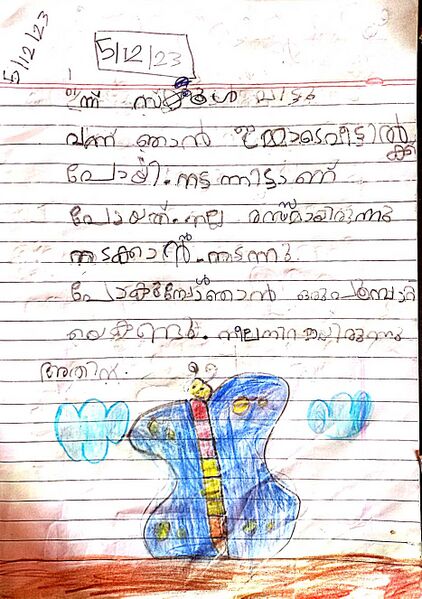 5/12/23
5/12/23
ഇന്ന് സ്കൂൾ വിട്ടു
വന്ന് ഞാൻ ഉമ്മാടെവീട്ടിൽ
ക്ക്
പോയി. നടന്നിട്ടാണ്
പോയത്. നല്ല രസമായിരുന്നു
നടക്കാൻ. നടന്നു
പോകുമ്പോൾഞാൻ ഒരുപൂമ്പാറ്റ
യെകണ്ടു. നീലനിറമായിരുന്നു
അതിന്.